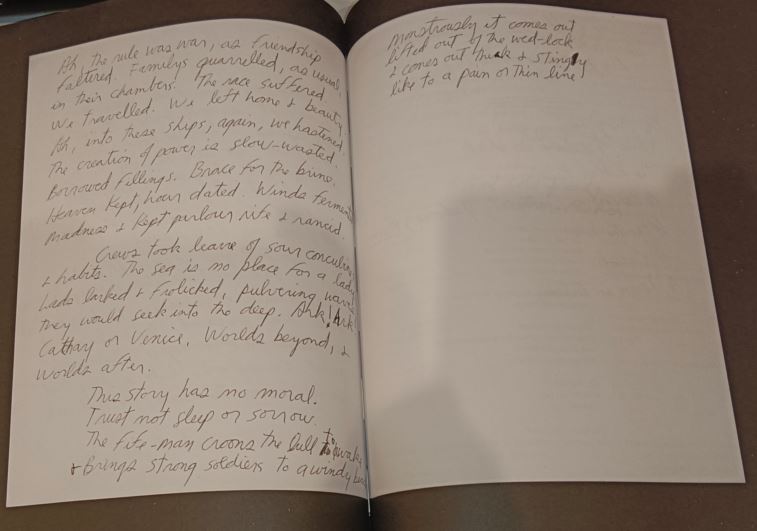 Ah, the rule was war, as friendship
faltered. Familys quarrelled, as usual,
in their chambers. The race suffered.
We travelled. We left home & beauty
Ah, into these ships, again, we hastened.
The creation of power is slow-wasted.
Borrowed fillings. Brace for the brine.
Heaven kept, hour dated. Winds ferment
madness & kept parlour rife & rancid.
Crews took leave of sour
& habits. The sea is no place for a lady
Lads larked & frolicked, pulvering waves
they would seek into the deep. Ark! Ark
Cathay or Venice. Worlds beyond, &
worlds after.
This story has no moral.
Trust not sleep or sorrow.
The fife-man croons the lull to
& Brings strong soldiers to a windy
Monstrously it comes out
lifted out of the wed-lock
& comes out thick & stingy
like to a pain or thin line